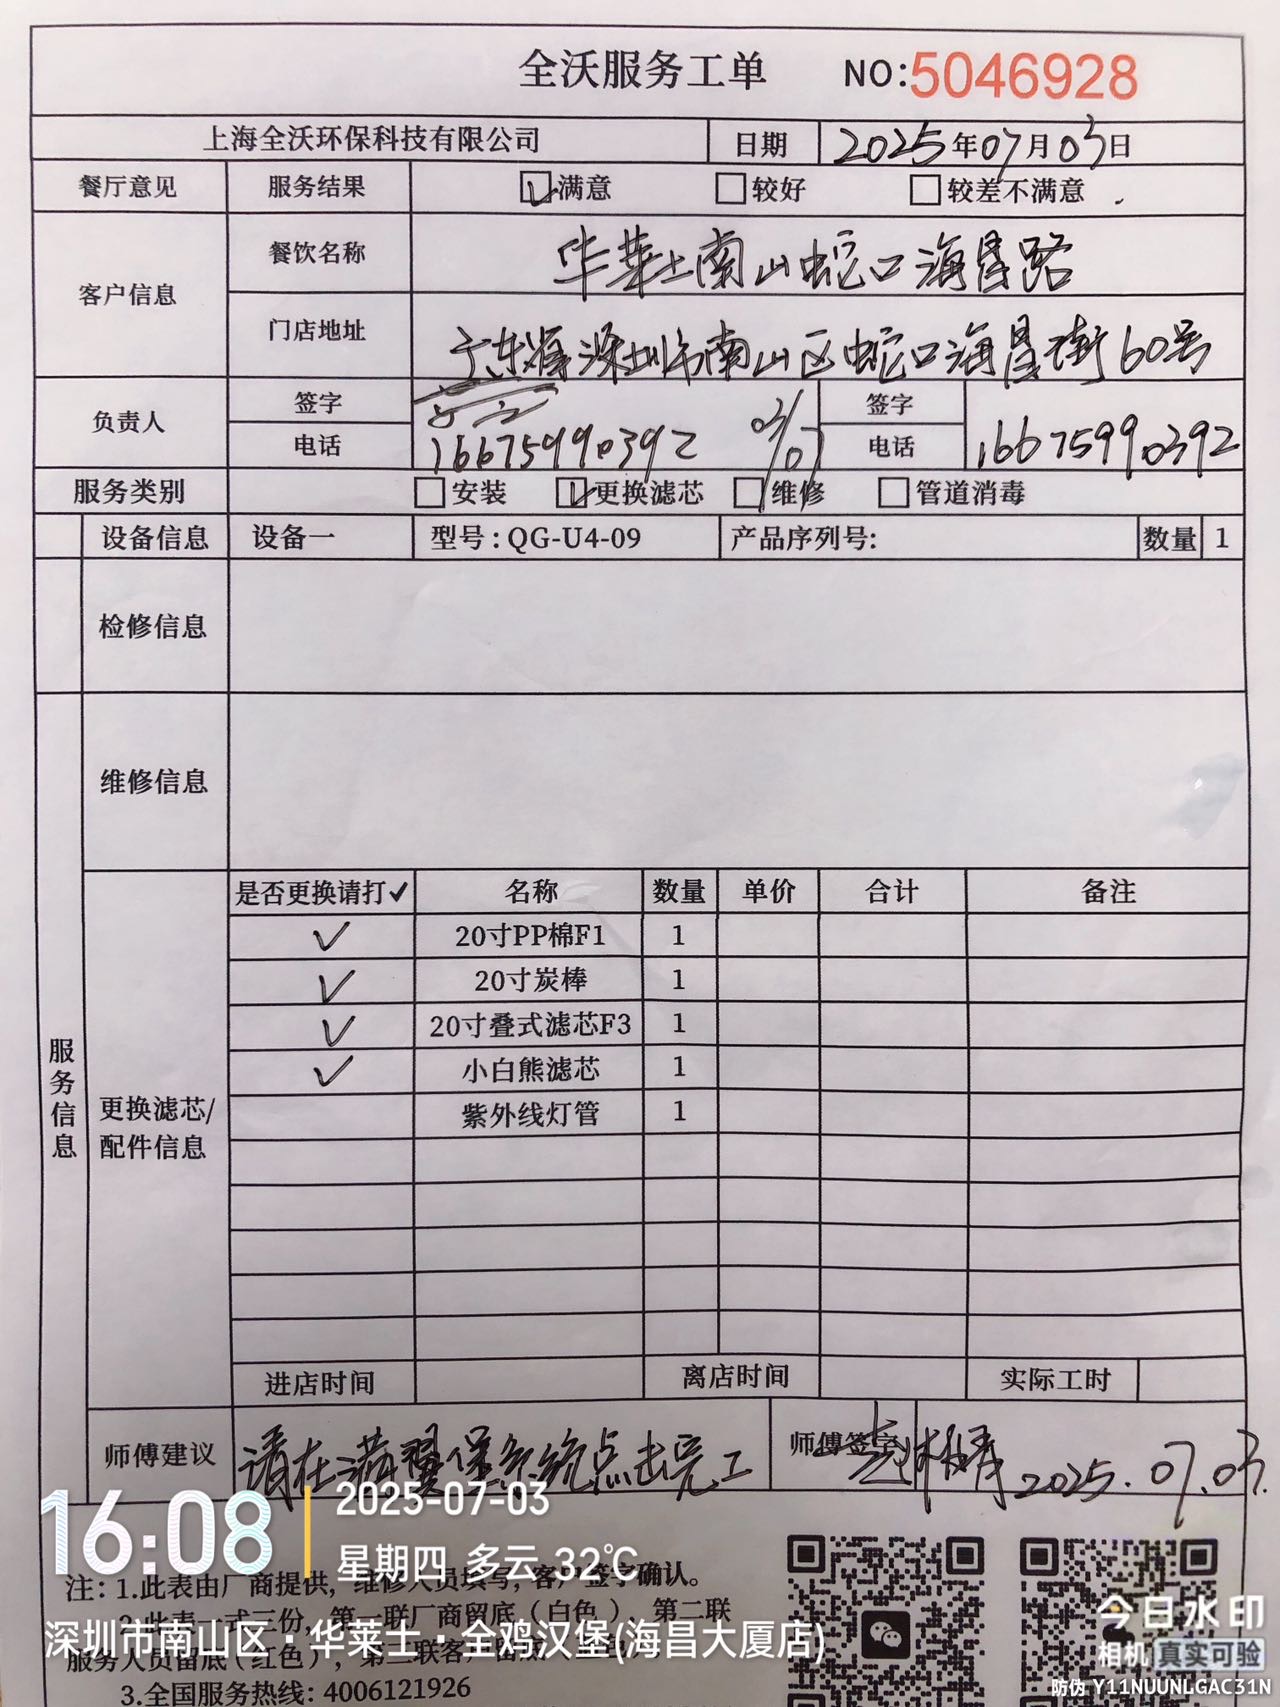 全沃服务工单 NO:5046928
上海全沃环保科技有限公司 日期 2025年07月03日
餐厅意见 服务结果 满意 较好 较差不满意
客户信息 餐饮名称 华莱士南山蛇口海昌路
门店地址 广东省深圳市南山区蛇口海昌街60号
负责人 签字 03/07 签字
电话 16675990392 电话 16675990392
服务类别 安装 更换滤芯 维修 管道消毒
设备信息 设备一 型号:QG-U4-09 产品序列号: 数量 1
检修信息
维修信息
服务信息
更换滤芯/
配件信息
是否更换请打✓ 名称 数量 单价 合计 备注
✓ 20寸PP棉F1 1
✓ 20寸炭棒 1
✓ 20寸叠式滤芯F3 1
✓ 小白熊滤芯 1
紫外线灯管 1
进店时间 离店时间 实际工时
师傅建议 请在满翼保系统点击完工 师傅签字 2025.07.03.
16:08 2025-07-03
星期四 多云 32℃
注: 1.此表由厂商提供, 维修人员填写, 客户签字确认。
2.此表一式三份, 第一联厂商留底(白色), 第二联
深圳市南山区·华莱士·全鸡汉堡(海昌大厦店)
服务人员留底(红色), 第三联客户留底
3.全国服务热线: 4006121926
今日水印
相机 真实可验
防伪 Y11NUUNLGAC31N